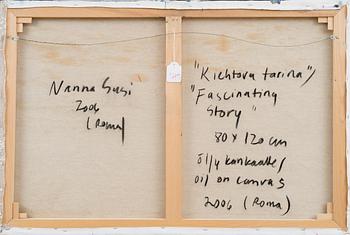 Nanna Susi
2006
(Roma)
"Kiehtova tarina"/
"Fascinating
Story"
80 x 120 cm
öljy kankaalle/
oil on canvas
2006 (Roma)